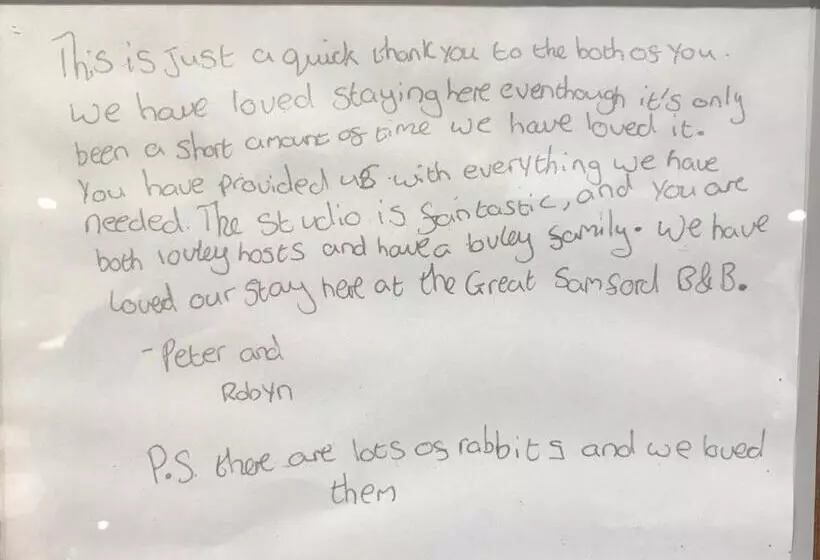 This is just a quick thank you to the both of you.
We have loved staying here eventhough it's only
been a short amount of time we have loved it.
You have provided us with everything we have
needed. The studio is fantastic, and you are
both lovley hosts and have a lovley family. We have
loved our stay here at the Great Samford B&B.
- Peter and
Robyn
P.S. there are lots of rabbits and we loved
them